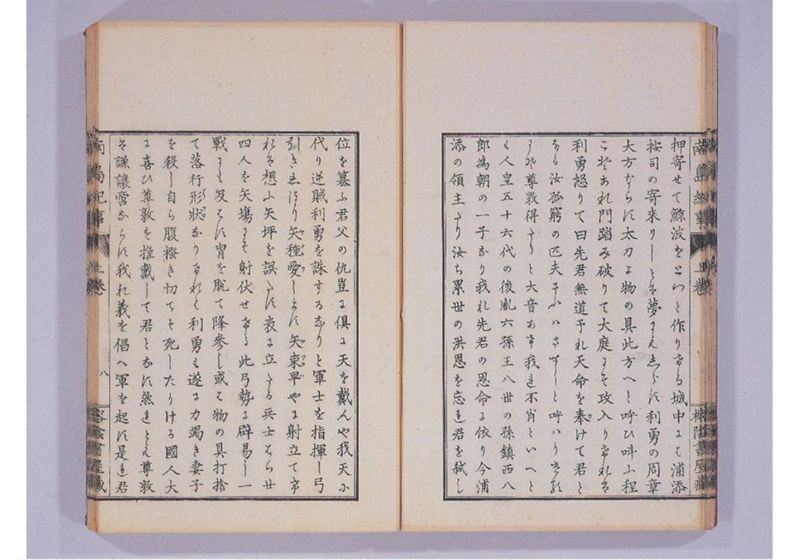 押寄せて鯨波をとつと作りける城中にては浦添
按司の寄來りしとは夢にもしらに利勇の周章
大方ならに太刀よ物の具此方へと呼ひ叫ふ程
こそあれ門踏み破りて大庭にそ攻入りたれは
利勇怒りて曰先君無道予れ天命を奉けて君と
なる汝孤窮の匹夫 と呼ハりける
尊敦得たりと大音あけ我れ不肖といへと
も人皇五十六代の後胤六孫王八世の孫鎮西八
郎為朝の一子なり我れ先君の恩命に依り今浦
添の領主たり汝ち累世の洪恩を忘れ君を弑し
南島紀事 上卷
位を簒ふ君父の仇豈に倶に天を戴んや我天に
代り逆賊利勇を誅するなりと軍士を指揮し弓
引き 矢種愛しまに矢束早やに射立て
れは想ふ矢坪を誤たに表に立たる兵士 廿
四人を矢場にて射伏せたり此弓勢に辟易し一
戦にも及はに冑を脱て降參し或は物の具打捨
て落行形状なりけれは利勇も遂に力竭き妻子
を殺し自ら腹搔き切てそ死したりける國人大
に喜ひ尊敦を推戴して君となに然れとも尊敦
は謙讓啻ならに我れ義を倡へ軍を起に是れ君
南島紀事 上卷 八